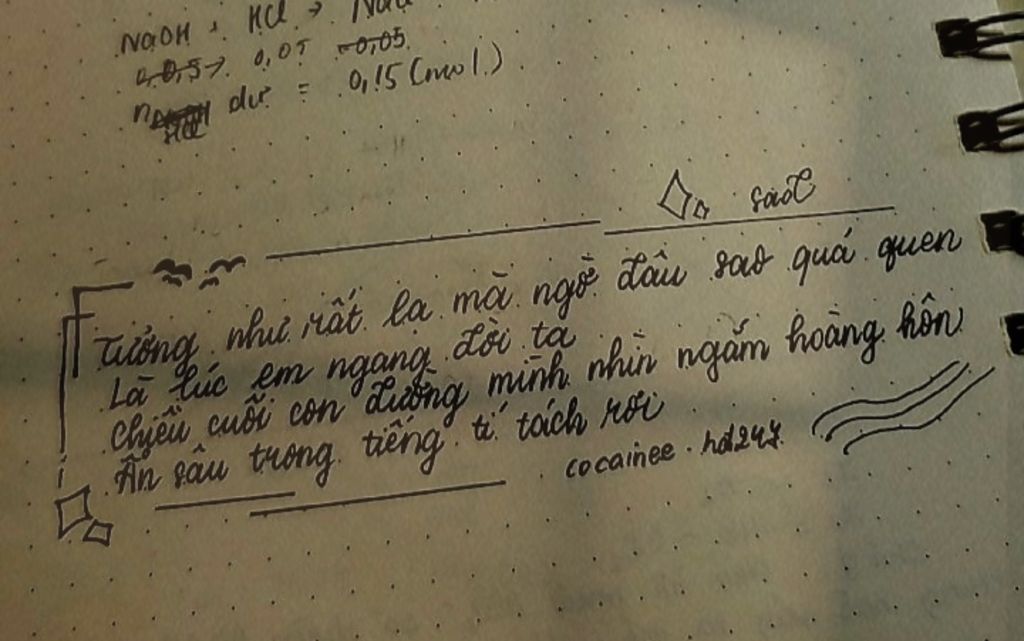 NaOH + HCl → NaCl
0,05 → 0,05 0,05
n dư = 0,15 (mol)
sao
Tưởng như rất lạ mà ngờ đâu sao quá quen
Là lúc em ngang đời ta
Chiều cuối con đường mình nhìn ngắm hoàng hôn
Ẩn sâu trong tiếng tí tách rơi
cocainee.hd247